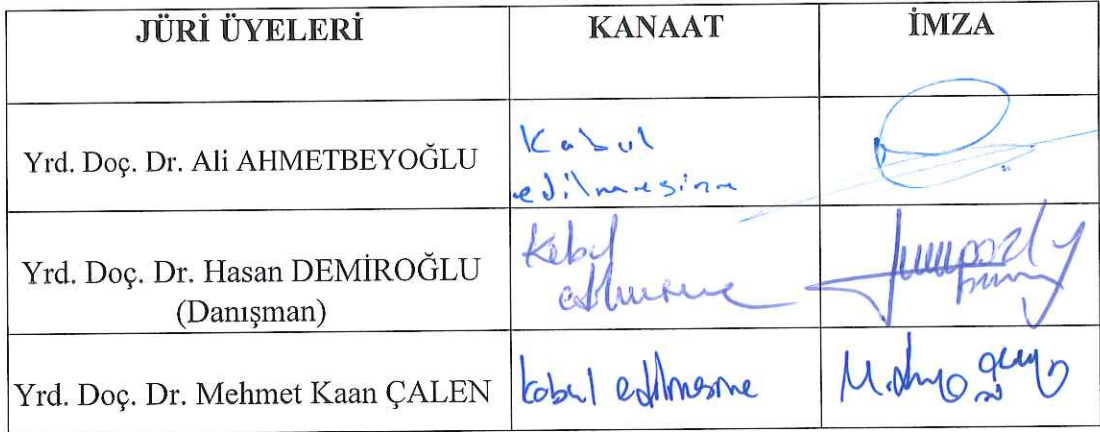 JÜRİ ÜYELERİ KANAAT İMZA
Yrd. Doç. Dr. Ali AHMETBEYOĞLU Kabul
edilmesine
Yrd. Doç. Dr. Hasan DEMİROĞLU Kabul
(Danışman) edilmesine
Yrd. Doç. Dr. Mehmet Kaan ÇALEN kabul edilmesine